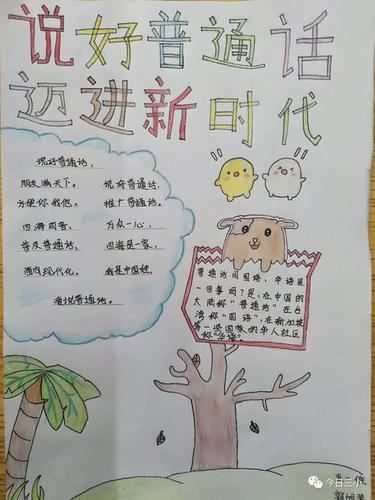 说好普通话
迈进新时代
说好普通话,
朋友满天下。 说好普通话,
方便你我他。 推广普通话。
四海同音, 万众一心,
普及普通话, 四海是一家,
面向现代化。 我是中国娃,
爱说普通话。
普通话同国语、华语是
一回事吗?是,在中国的
大陆称"普通话"在台
湾称"国语",在新加坡
等一些国家的华人社区
称"华语"。
今日三小